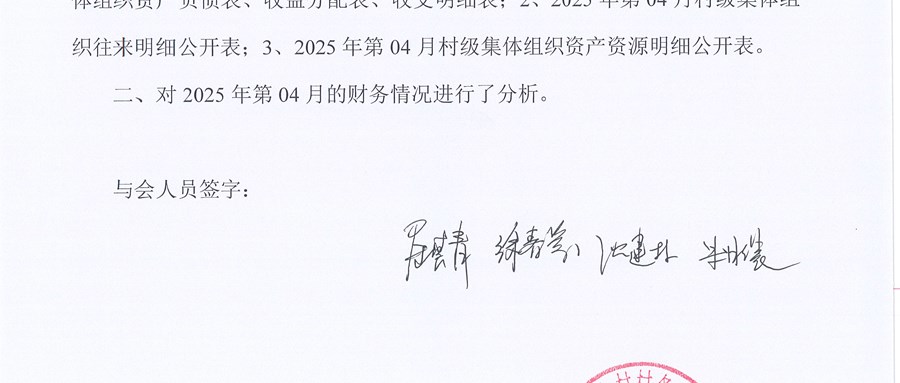 体组织资产负债表、收益分配表、收支明细表；2、2025 年第 04 月村级集体组
织往来明细公开表；3、2025 年第 04 月村级集体组织资产资源明细公开表。
二、对 2025 年第 04 月的财务情况进行了分析。
与会人员签字：